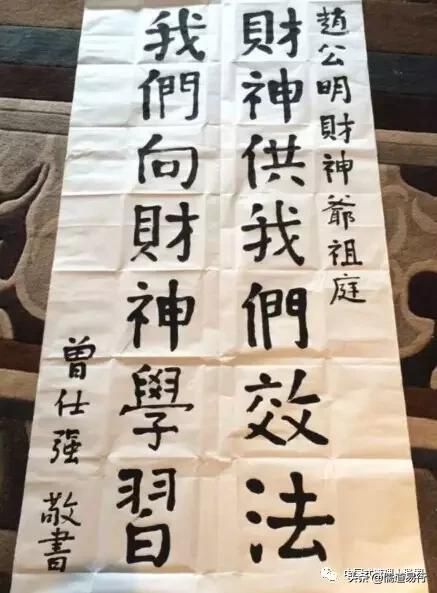 趙公明財神爺祖庭
財神供我們效法
我們向財神學習
曾仕强 敬書
头条 @儒道易行